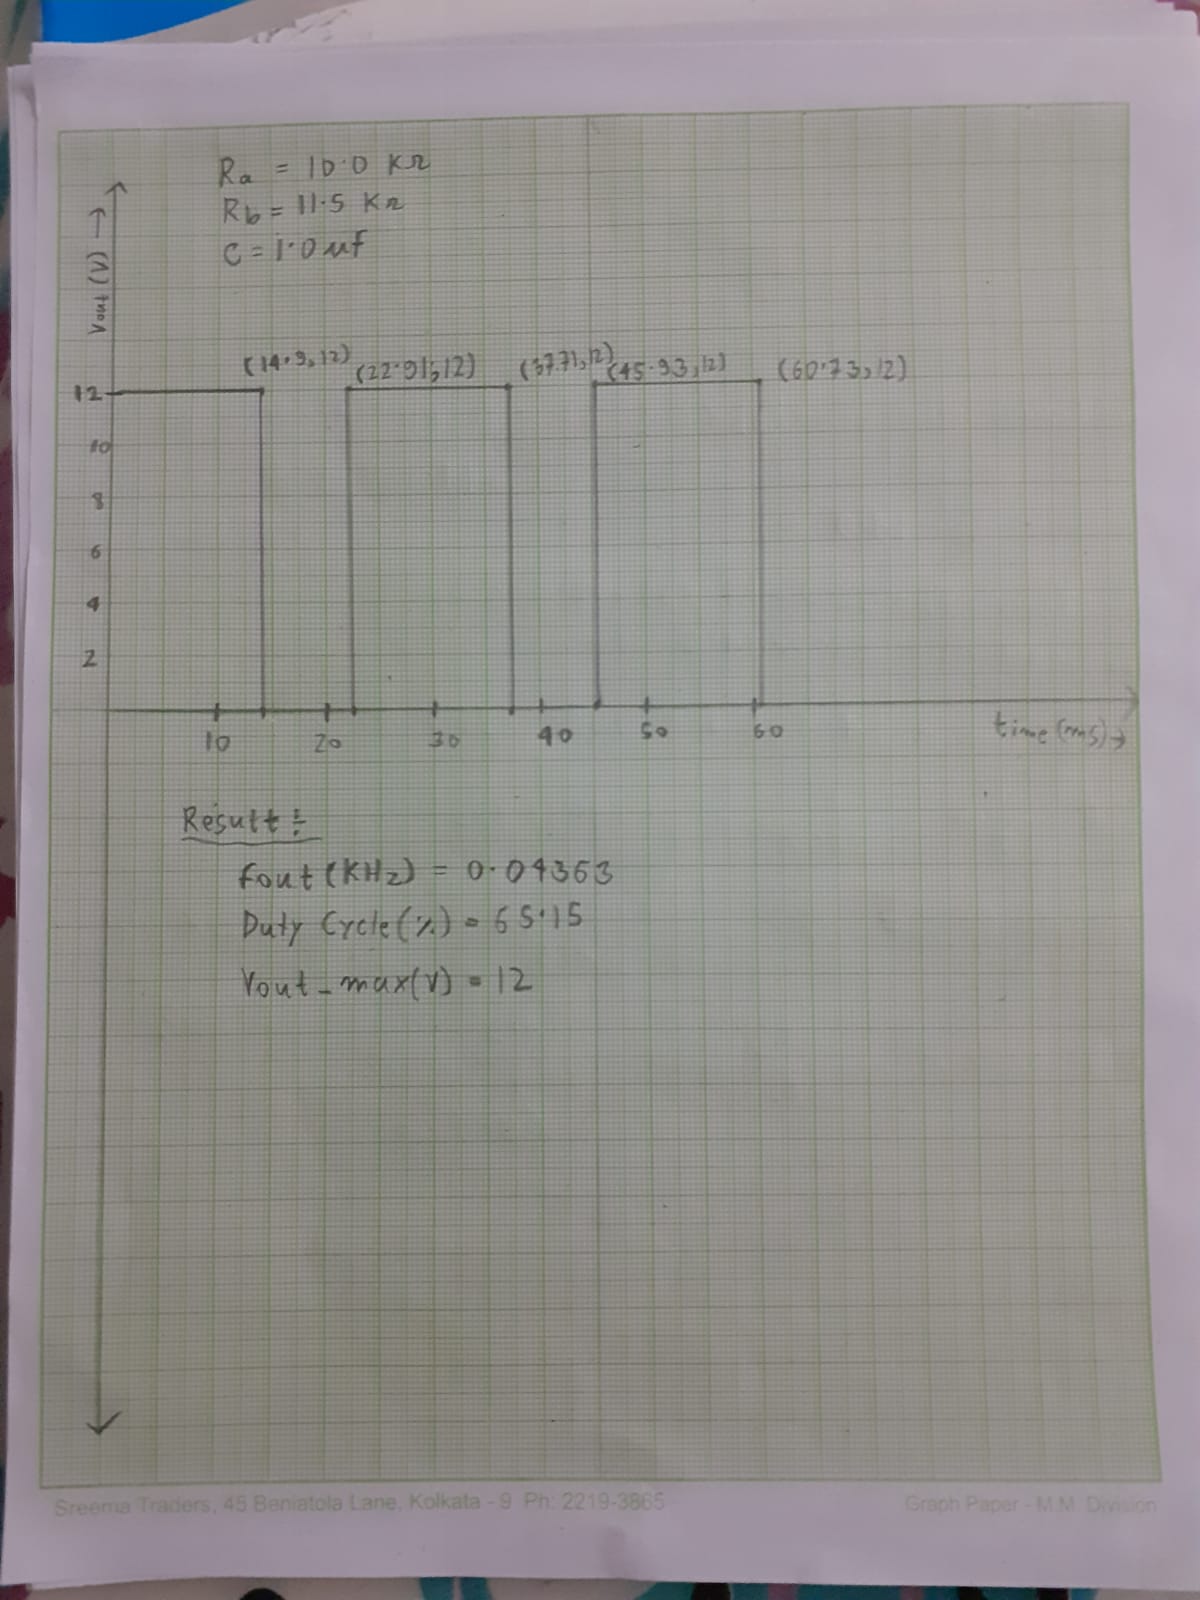 Ra = 10.0 KΩ
Rb = 11.5 KΩ
C = 1.0 μf
Vout (V) →
(14.9, 12) (22.91, 12) (37.71, 12) (45.93, 12) (60.73, 12)
12
10
8
6
4
2
10 20 30 40 50 60 time (ms) →
Result :
fout (KHz) = 0.04363
Duty Cycle (%) = 65.15
Vout - max(V) = 12
Sreema Traders, 45 Beniatola Lane, Kolkata - 9 Ph: 2219-3865 Graph Paper - M.M. Division